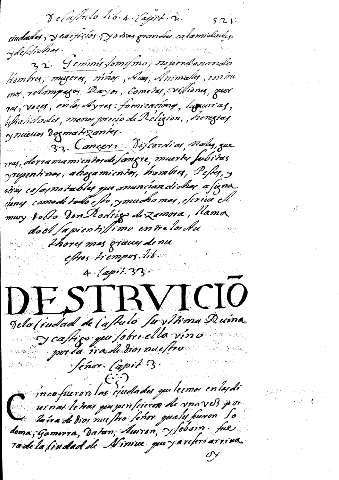 De Castulo lib. 4. Capit. 2. 521
ciudades, y edificios, y otras grandes calamidades,
y desdichas.
32. Geminis lo mismo, respondiendo
hombres, mugeres, niños, Alas, Animales,
relampagos Rayos, Cometas, visiones, guer
ras, voces, en los Ayres: fornicaciones, lujurias,
menos precio de Religion, heregias
y nuevos Dogmatizantes.
33. Cancer: Discordias, Males, gue
rras, derramamientos de sangre, muertes subitas
y repentinas, ahogamientos, hambres, Pestes, y
otras cosas notables que anuncian dichos
como de todo esto, y mucho mas, escrive el
muy Docto Don Rodrigo de Zamora, llama
do el sapientissimo entre los Au
thores mas graves de nu
estros tiempos. lib.
4. Capit. 33.
DESTRVICIÕ
De la Ciudad de Castulo su ultima Ruina
y castigo que sobre ella vino
por la ira de Dios nuestro
Señor. Capit. 3.
Cinco fueron las Ciudades que leemos en las di
vinas letras que perecieron de una vez por
la ira de Dios nuestro Señor quales fueron So
doma, Gomorra, fue
ra de la Ciudad de Ninive que